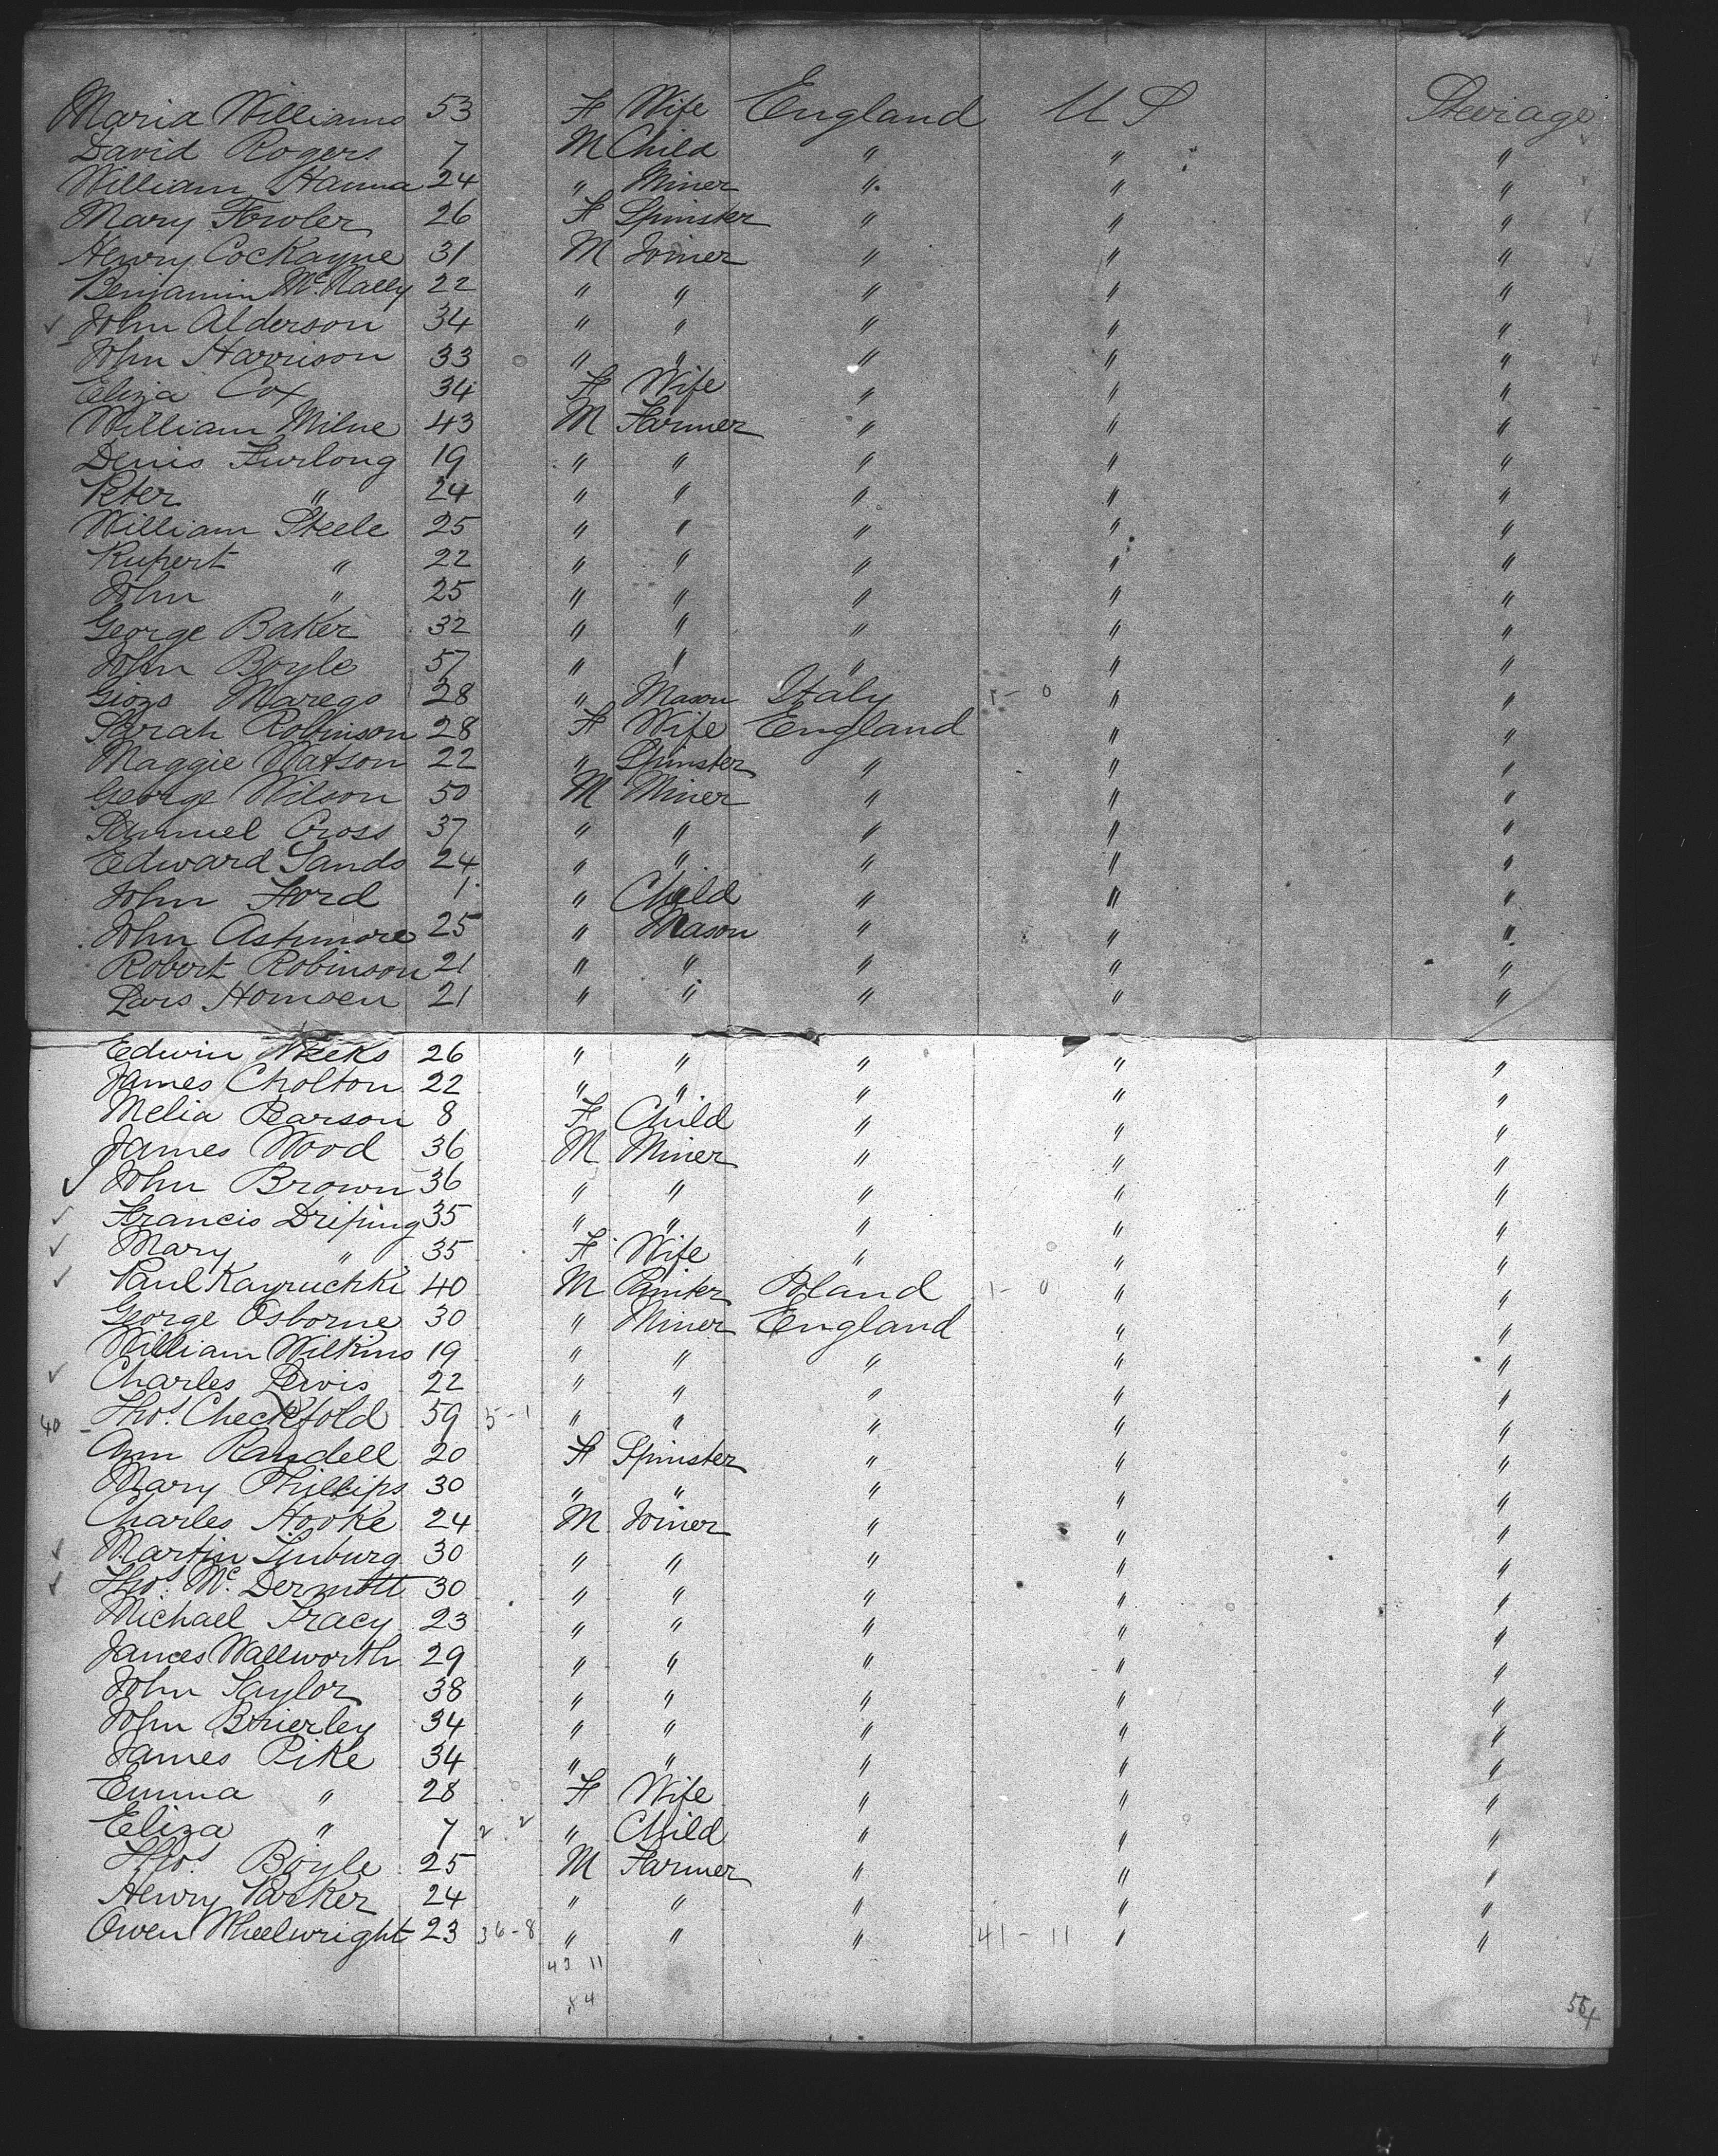 Maria Williams 53 F Wife England U S Steerage
David Rogers 7 M Child " " "
William Hanna 24 " Miner " " "
Mary Fowler 26 F Spinster " " "
Henry Cockayne 31 M Joiner " " "
Benjamin McNally 22 " " " " "
John Alderson 34 " " " " "
John Harrison 33 " " " " "
Eliza Cox 34 F Wife " " "
William Milne 43 M Farmer " " "
Denis Furlong 19 " " " " "
Peter " 24 " " " " "
William Steele 25 " " " " "
Rupert " 22 " " " " "
John " 25 " " " " "
George Baker 32 " " " " "
John Boyle 57 " " " " "
Marego 28 " Mason Italy 1 - 0 " "
Sarah Robinson 28 F Wife England " "
Maggie Watson 22 " Spinster " " "
George Wilson 50 M Miner " " "
Samuel Cross 37 " " " " "
Edward Sands 24 " " " " "
John Ford 1 " Child " " "
John Ashmore 25 " Mason " " "
Robert Robinson 21 " " " " "
Lars Homsen 21 " " " " "
Edwin Weeks 26 " " " " "
James Cholton 22 " " " " "
Melia Pearson 8 F Child " " "
James Wood 36 M Miner " " "
John Brown 36 " " " " "
Francis Driping 35 " " " " "
Mary " 35 F Wife " " "
Paul Kayruchki 40 M Painter Poland 1 - 0 " "
George Osborne 30 " Miner England " "
William Wilkins 19 " " " " "
Charles Lewis 22 " " " " "
40 - Thos. Checkfold 59 5-1 " " " " "
Ann Randell 20 F Spinster " " "
Mary Phillips 30 " " " " "
Charles Hooke 24 M Joiner " " "
Martin Linburg 30 " " " " "
Thos. McDermott 30 " " " " "
Michael Tracy 23 " " " " "
James Wallworth 29 " " " " "
John Taylor 38 " " " " "
John Brierley 34 " " " " "
James Pike 34 " " " " "
Emma " 28 F Wife " " "
Eliza " 7 2 2 " Child " " "
Thos. Boyle 25 M Farmer " " "
Henry Parker 24 " " " " "
Owen Wheelwright 23 36-8 " " " 41 - 11 " "
43 11
54